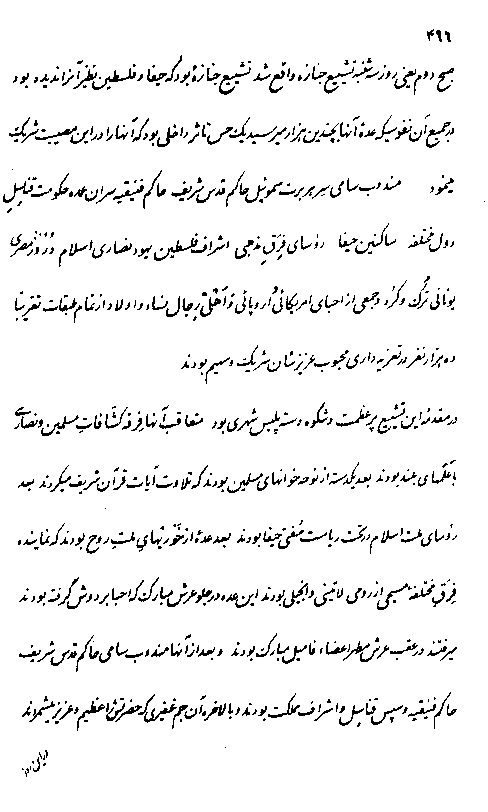 ۴۹۶
صبح دوم یعنی روز سه شنبه تشییع جنازه واقع شد تشییع جنازهٔ بود که حیفا و فلسطین نظیر آنرا ندیده بود
در جمیع آن نفوسیکه عدهٔ آنها بچندین هزار میرسید یک حس تأثر داخلی بود که آنها را در این مصیبت شریک
مینمود مندوب سامی سر هربرت سموئیل حاکم قدس شریف حاکم فنیقیه سران عمده حکومت قناسل
دول مختلفه ساکنین حیفا رؤسای فرق مذهبی اشراف فلسطین یهود نصاری اسلام دروز مصری
یونانی ترک و کرد و جمعی از احبای امریکائی اروپائی و اهلی رجال نساء و اولاد از تمام طبقات تقریبا
ده هزار نفر در تعزیه داری محبوب عزیزشان شریک و سهیم بودند
در مقدمه این تشییع پر عظمت و شکوه دسته پلیس شهری بود متعاقب آنها فرقه کشافات مسلمین و نصاری
با علمهای بلند بودند بعد یکدسته از نوحه خوانهای مسلمین بودند که تلاوت آیات قرآن شریف میکردند بعد
رؤسای ملت اسلام در تحت ریاست مفتی حیفا بودند بعد عدهٔ از خوریهای ملت روح بودند که نماینده
فرق مختلفه مسیحی از رومی لاتینی و انجیلی بودند این عده در جلو عرش مبارک که احبا بر دوش گرفته بودند
میرفتند در عقب عرش مطهر اعضاء فامیل مبارک بودند و بعد از آنها مندوب سامی حاکم قدس شریف
حاکم فنیقیه و سپس قناسل و اشراف مملکت بودند و بالاخره آن جم غفیری که حضرتش را عظیم و عزیز میشمردند